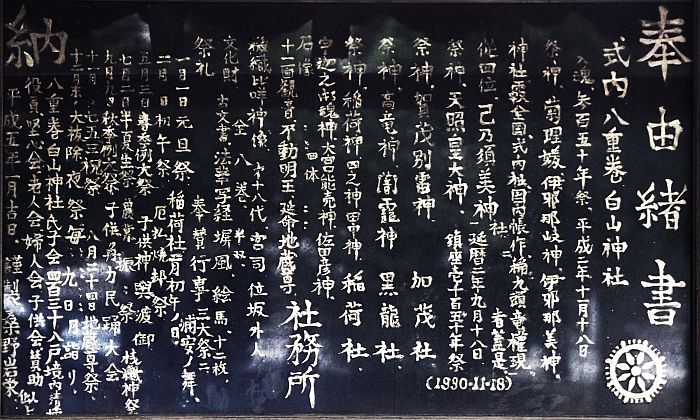 奉由緒書
式内八重巻白山神社
入魂、参百五十年祭、平成二年十月十八日
祭神、菊理媛、伊邪那岐神、伊邪那美神
神社覈全国式内社国内帳作 稱九頭竜権現
社、 者蓋是
従四位、己乃須美神、延暦二年九月十八日
祭神、天照皇大神、鎮座壱千百五十年祭
(1990・11・18)
祭神、賀茂別雷神 加茂社
祭神、高竜神 闇龗神 黒龍社
祭神、稲荷神、四之神 田中神、稲荷社
宇迦之御魂神、大宮能売神 佐田彦神
石像 四体
十一面観音 不動明王 延命地蔵尊 社務所
機織比咩神像
文化財 全八巻
古文書、法華写経 塀風 絵馬、十二枚
十八代宮司位坂外人
祭礼 奉賛行事 三大祭ニ
浦安ノ舞
一月一日元旦祭 稲荷社二月初午ノ日
二月 日初午祭
五月三日春季例大祭 子供神輿渡御
七月二日半夏生祭 農業振 祭
九月九日秋季例大祭 子供角力 民踊大会
十一月 七五三祝祭 八月二十四日地蔵尊祭
十二月末、大祓除夜祭 毎 九日 月詣り
八重巻白山神社氏子会四百三十八戸境内清掃
役員 堅心会 若人会 婦人会 子供会賛助 以上
平成五年一月吉日 謹製 桑野岩泉
納